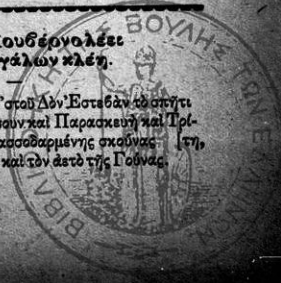 Κουβέρνολέει
γάλων κλέη.
'στοῦ Δὸν Ἐστεβὰν τὸ σπῆτι
σουν καὶ Παρασκευὴ καὶ Τρί-
ασσοδαρμένης σκούνας [τη,
καὶ τὸν ἀετὸ τῆς Γούνας.
ΒΙΒΛΙΟ ΒΟΥΛΗΣ